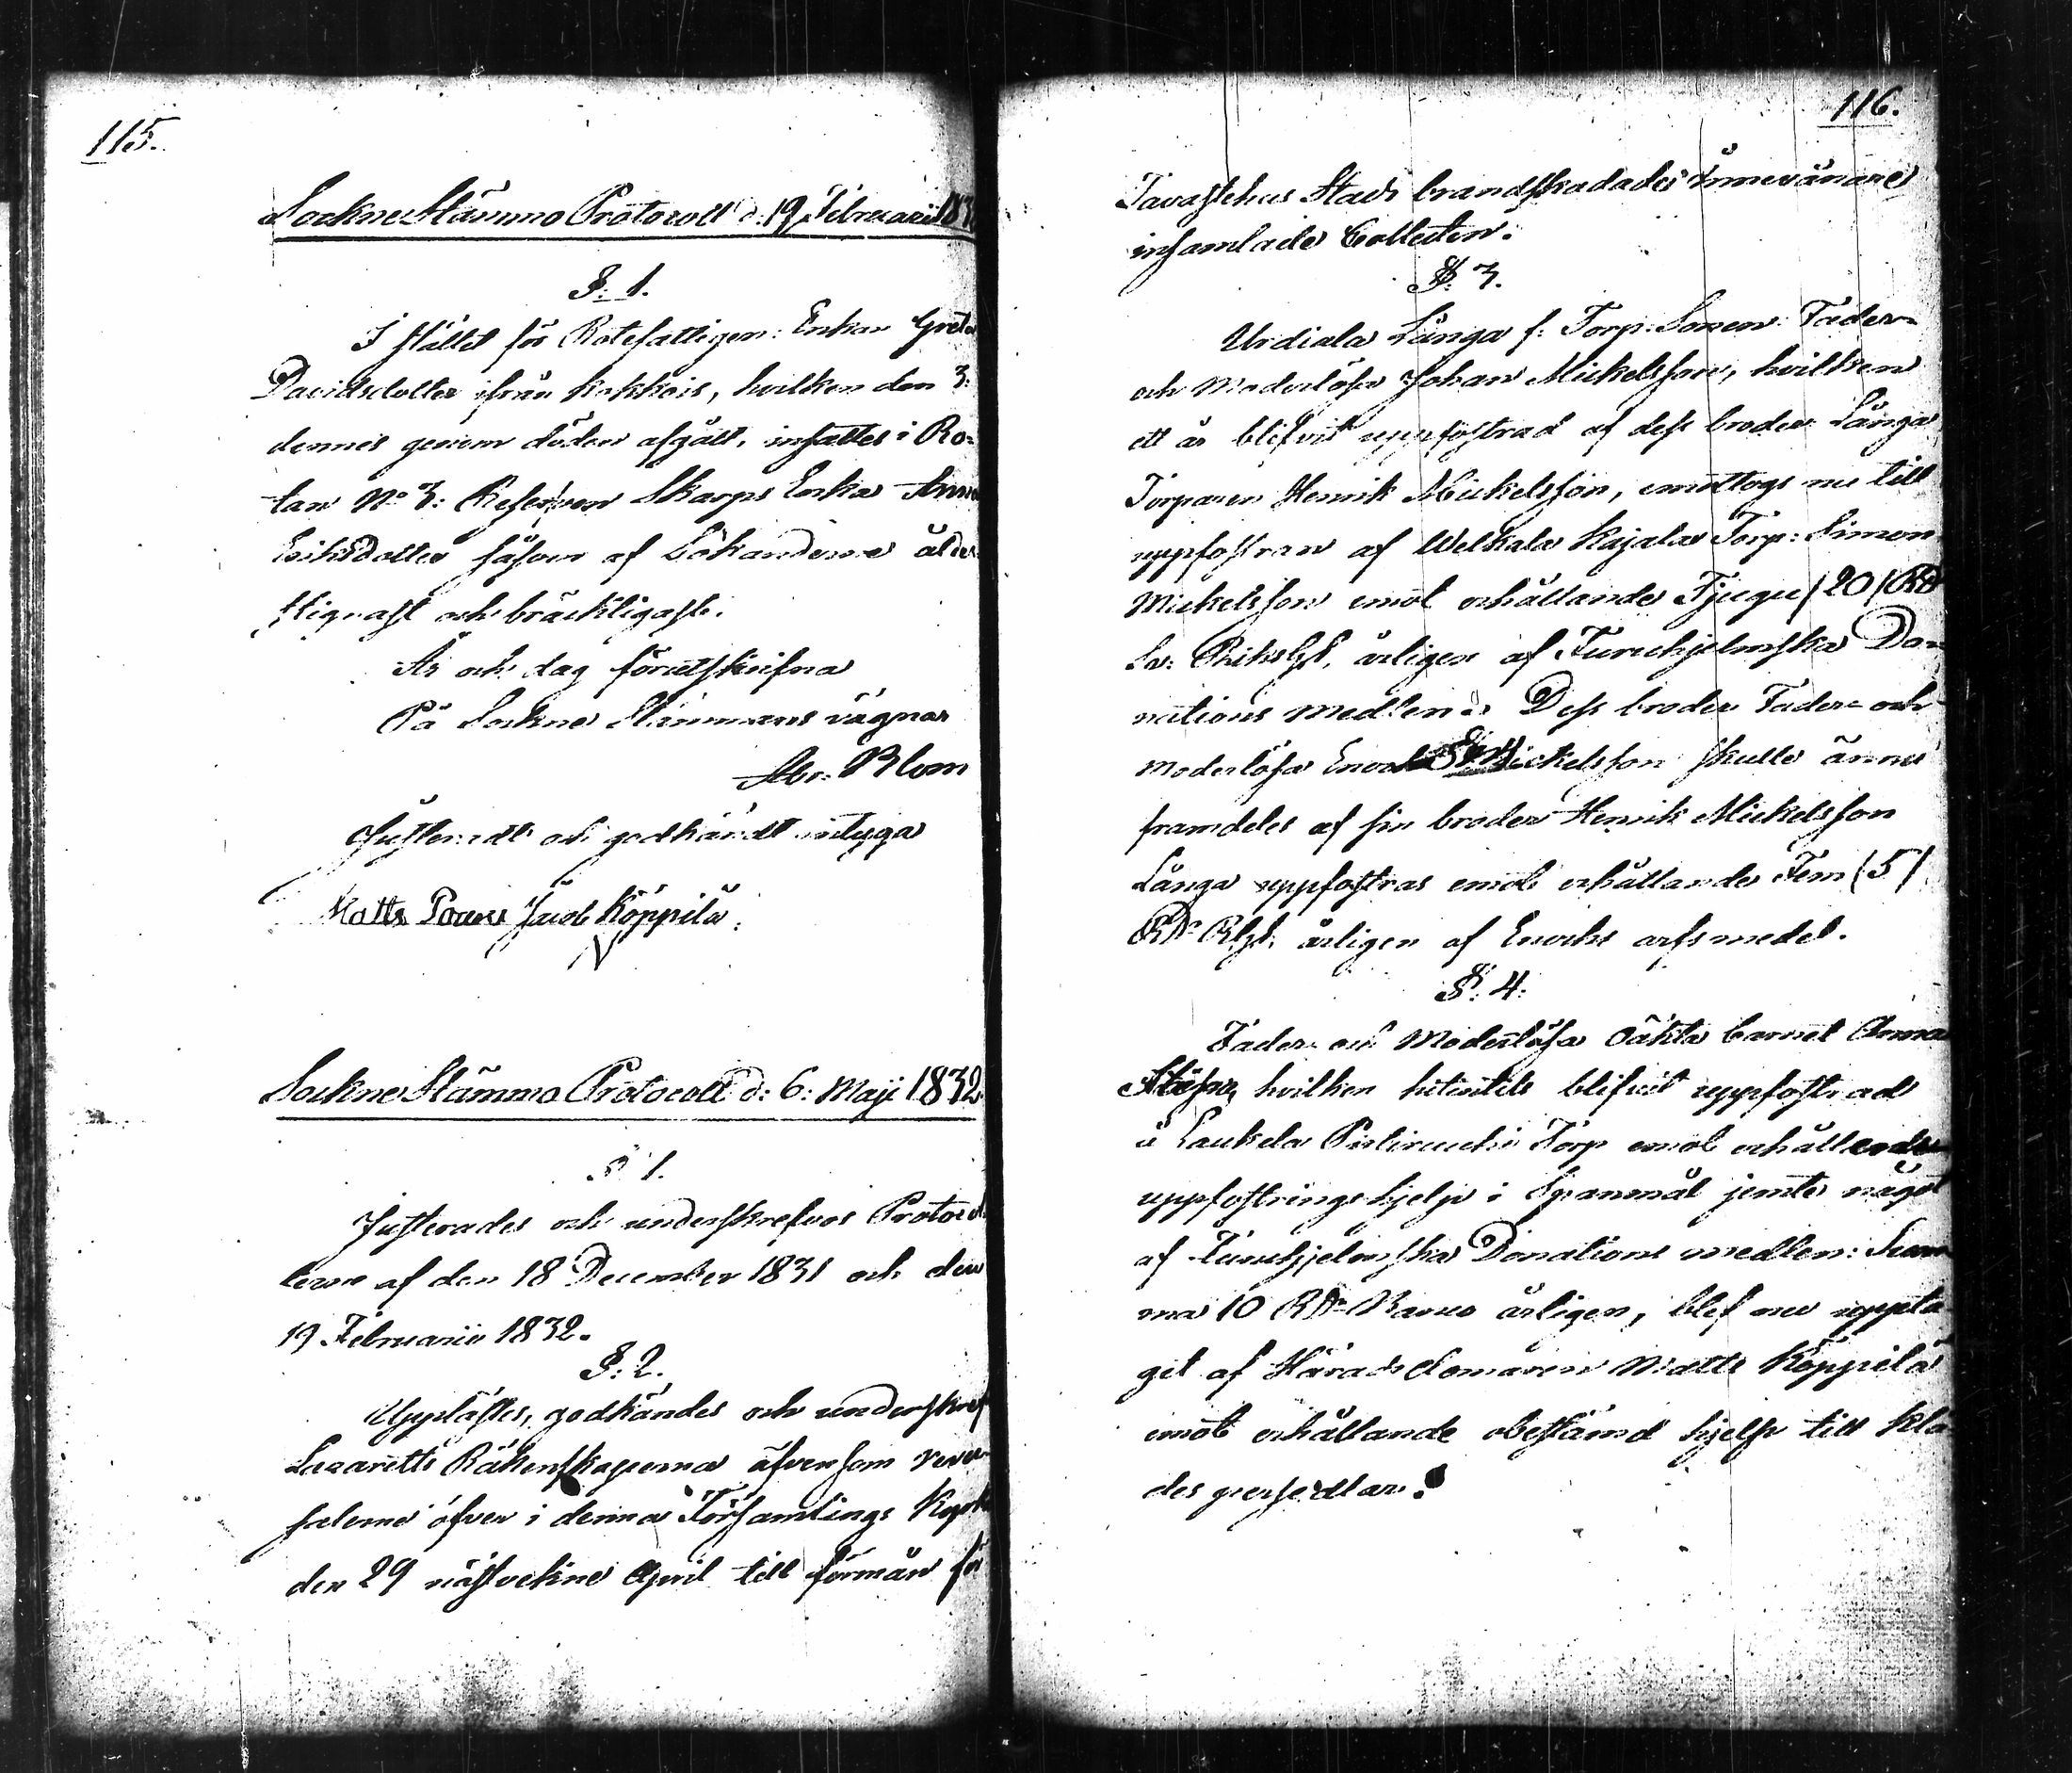 115.
Sockne Stämmo Protocoll d. 19 Februarii 183
§. 1.
I stället för Rotefattigen: Enkan Greta
Davidsdotter ifrån Kokkois, hvilken den 3:
dennes genom döden afgått, insattes i Ro-
tan No 3: Reserven Skarps Enka Anna
Eriksdotter såsom af Sökanderne ålder
stignast och bräckligast.
År och dag förutskrifna
På Sockne Stämmans vägnar
Abr: Blom
Justeradt och godkändt intyga
Matts Jacob Köppilä.
Sockne Stämmo Protocoll d: 6: Maji 1832
§ 1.
Justerades och underskrefvos Protocol
lerne af den 18 December 1831 och den
19 Februarii 1832.
§. 2.
Upplästes, godkändes och underskref
Lazaretts Räkenskaperna äfvensom rever
salerne öfver i denna Församlings Kyrk
den 29 nästvekne April till förmån för
116.
Tavastehus Stads brandskadade Innevånare
insamlade Collecten.
§. 3.
Urdiala Långa f: Torp: Sonen: Fader-
och Moderlösa Johan Mickelsson, hvilken
ett år blifvit uppfostrad af dess broder Långa
Torparen Henrik Mickelsson, emottogs nu till
uppfostran af Welkala Kajala Torp: Simon
Mickelsson emot erhållande Tjugu (20) RD
Sv: Riksgd. årligen af Furuhjelmska Do-
nations medlen. Dess broder Fader- och
moderlösa Enoch Mickelsson skulle ännu
framdeles af sin broder Henrik Mickelsson
Långa uppfostras emot erhållande Fem (5)
RD Rgd. årligen af Enochs arfsmedel.
§. 4.
Fader- och Moderlösa oäkta barnet Anna
hvilken hitintills blifvit uppfostrad
å Laukela Torp emot erhållande
uppfostringshjelp i Spanmål jemte något
af Furuhjelmska Donations medlen: Sum
ma 10 RD Banco årligen, blef nu uppta
git af Häradsdomaren Matts Köppilä
emot erhållande obestämd hjelp till klä
despersedlar.